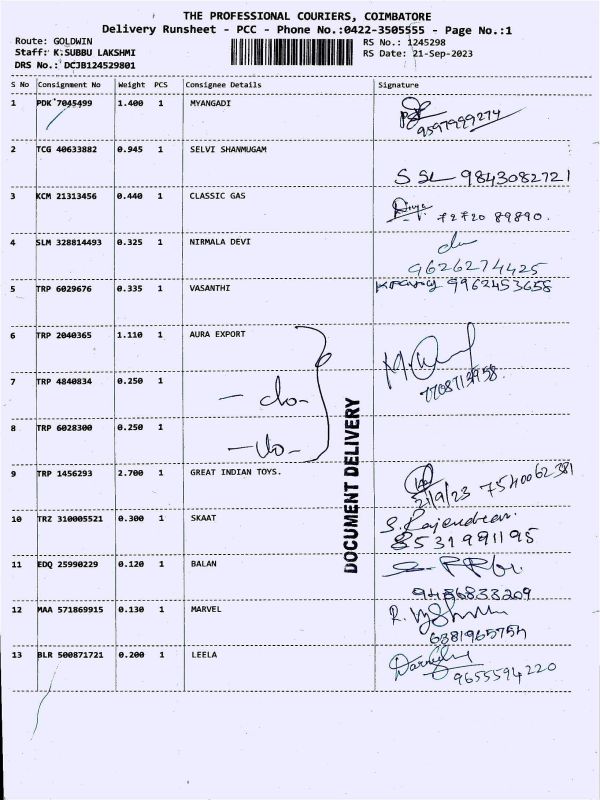 THE PROFESSIONAL COURIERS, COIMBATORE
Delivery Runsheet - PCC - Phone No.:0422-3505555 - Page No.:1
Route: GOLDWIN
Staff: K.SUBBU LAKSHMI
DRS No.: DCJB124529801
RS No.: 1245298
RS Date: 21-Sep-2023
S No Consignment No Weight PCS Consignee Details Signature
1 PDK 7045499 1.400 1 MYANGADI
9597999274
2 TCG 40633882 0.945 1 SELVI SHANMUGAM
9843082721
3 KCM 21313456 0.440 1 CLASSIC GAS
72720 89890.
4 SLM 328814493 0.325 1 NIRMALA DEVI
9626274425
5 TRP 6029676 0.335 1 VASANTHI
9962453658
6 TRP 2040365 1.110 1 AURA EXPORT
7 TRP 4840834 0.250 1 -do-
8 TRP 6028300 0.250 1
-do-
DOCUMENT DELIVERY
9 TRP 1456293 2.700 1 GREAT INDIAN TOYS.
21/9/23 7540062381
10 TRZ 310005521 0.300 1 SKAAT
S. Rajendran.
8531991195
11 EDQ 25990229 0.120 1 BALAN
9486833209
12 MAA 571869915 0.130 1 MARVEL
6381965754
13 BLR 500871721 0.200 1 LEELA
9655594220